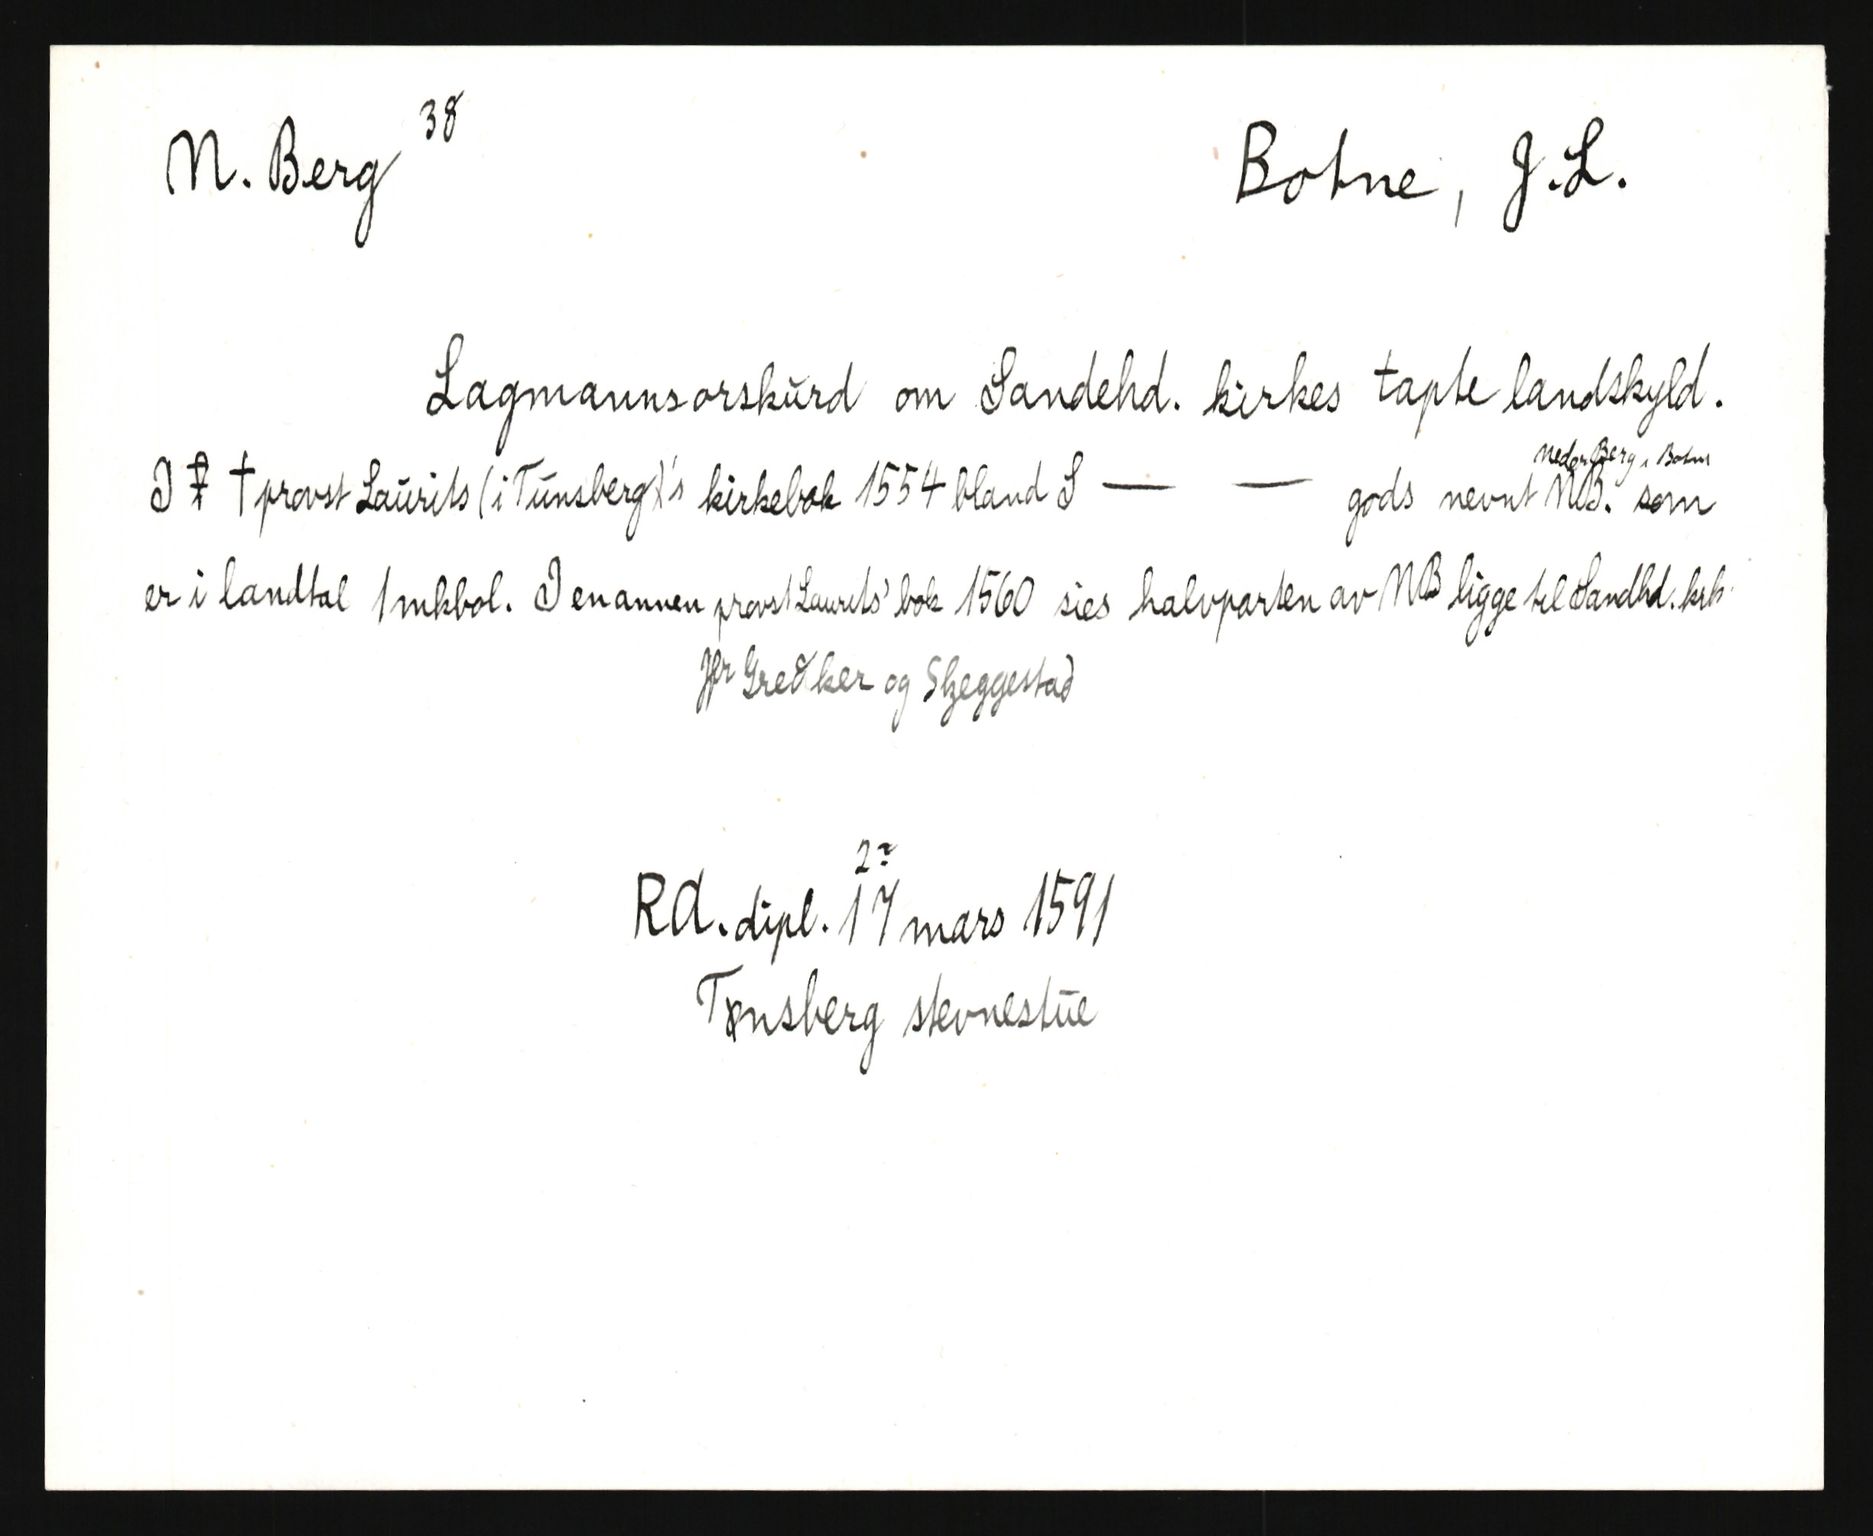 N. Berg 38
Botne, J.L.
Lagmannsorskurd om Sandehd. kirkes tapte landskyld.
Neder Berg i Botne
I † provst Laurits (i Tunsberg)'s kirkebok 1554 bland S — — gods nevnt NB. som
er i landtal 1 mkbol. I en annen provst Laurits' bok 1560 sies halvparten av NB ligge til Sandhd. krk.
Jfr Greåker og Skjeggestad
2?
RA. dipl. 17 mars 1591
Tønsberg stevnestue